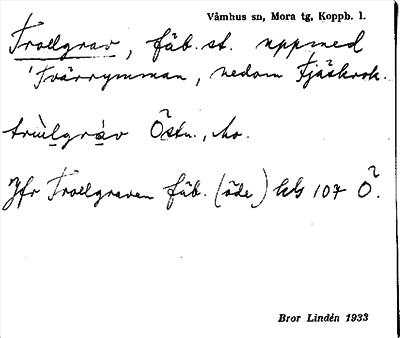 Våmhus sn, Mora tg, Koppb. l.
Trollgrav, fäb.st. uppmed
'Tvärrymman, nedom Fjäskrok.
trùlgràv Östn., ho.
Jfr Trollgraven fäb. (öde) kbl 107 Ö.
Bror Lindén 1933